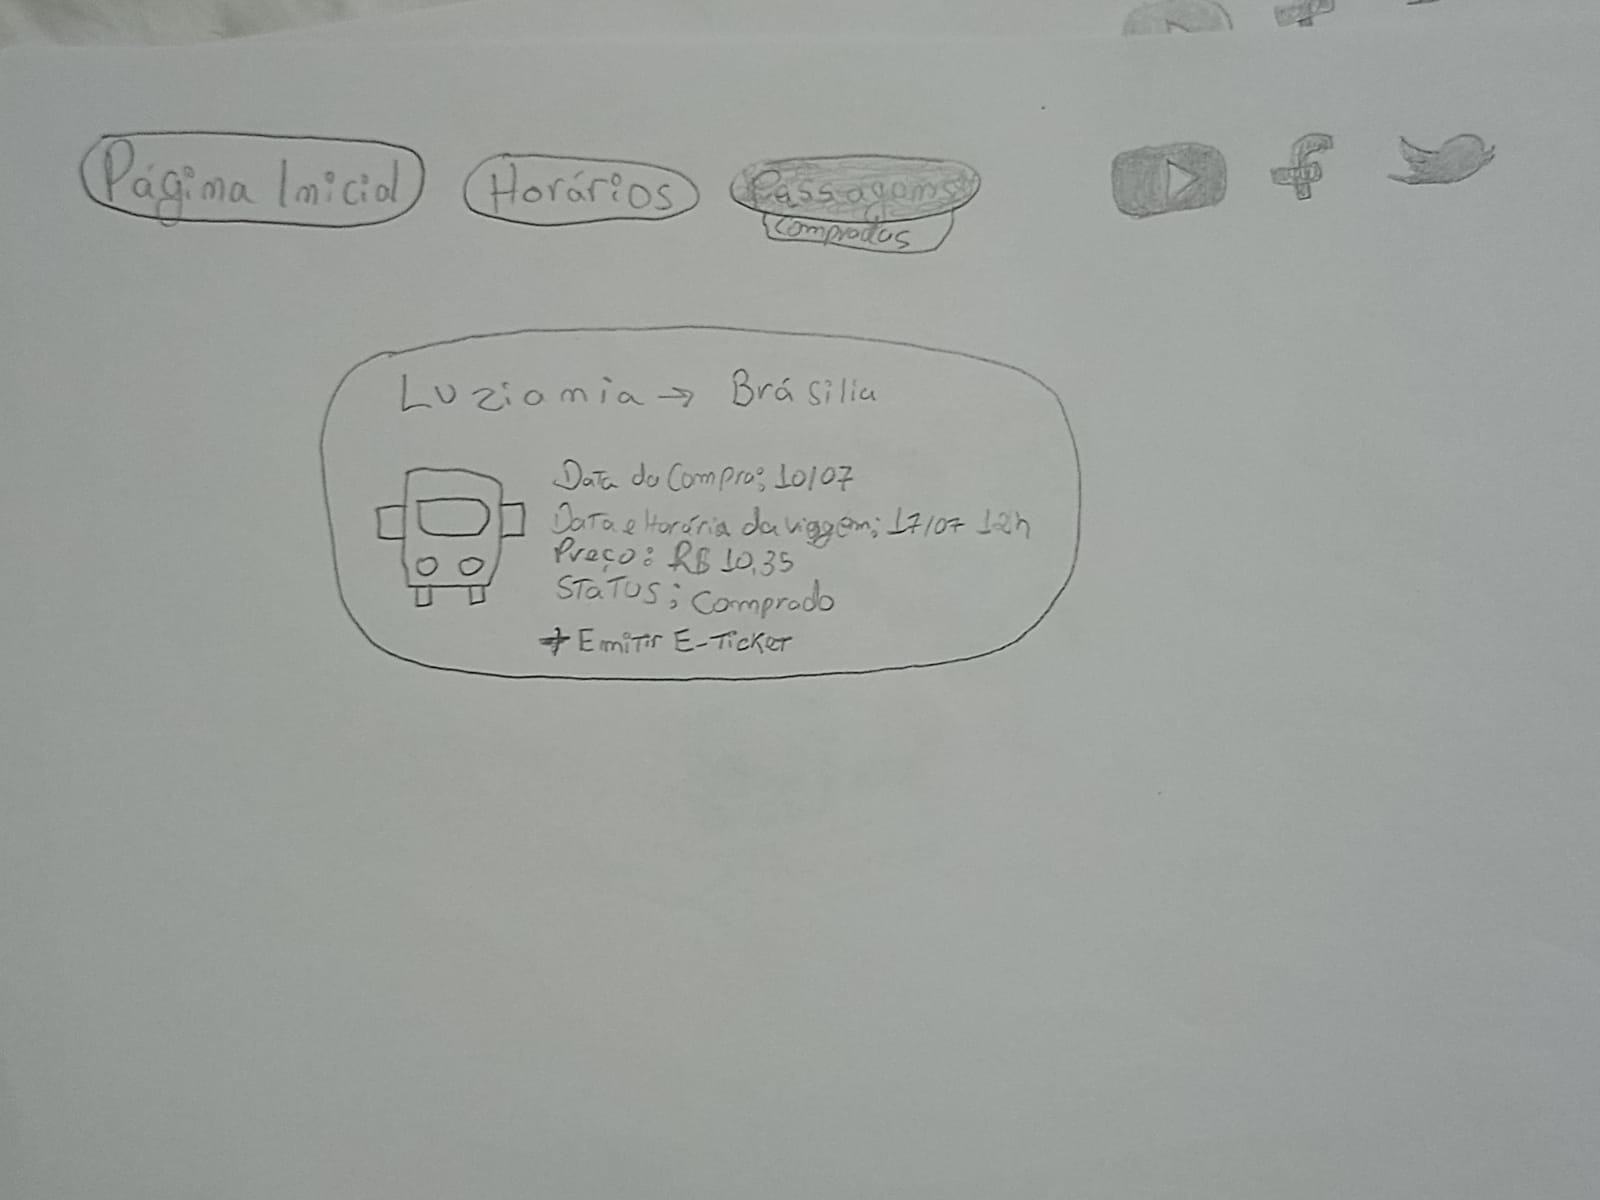 Página Inicial
Horários
Passagems
Compradas
Luziania → Brásilia
Data da Compra; 10/07
Data e Horária da viagem; 17/07 12h
Preço: R$ 10,35
Status; Comprado
→ Emitir E-Ticket